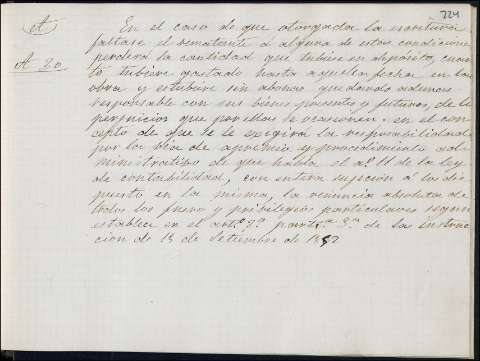 724
A
En el caso de que otorgada la escritura
A 20
faltase el rematante á alguna de estas condiciones
perderá la cantidad que tubiese en depósito, cuan-
to tubiere gastado hasta aquella fecha en las
obra y estubiere sin abonar quedando ademas
responsable con sus bienes presentes y futuros, de los
perjuicios que por ellas se ocasionen: en el con-
cepto de que se le exigirá la responsabilidad
por la via de apremio y procedimiento ad-
ministrativo de que habla el aº 11 de la ley
de contabilidad, con entera sujecion á lo dis-
puesto en la misma, la renuncia absoluta de
todos los fueros y privilegios particulares segun
establece en el artº 9º 3ª de las instruc-
cion de 18 de Setiembre de 1852